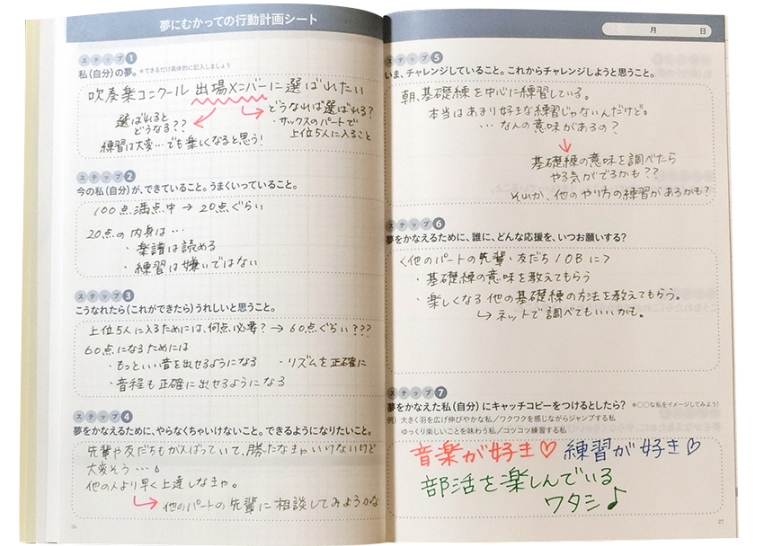 夢にむかっての行動計画シート
ステップ1
私(自分)の夢。※できるだけ具体的に記入しましょう
吹奏楽コンクール 出場メンバーに選ばれたい
選ばれると
どうなる??
練習は大変…でも楽しくなると思う!
どうなれば選ばれる?
・サックスのパートで
上位5人に入ること
ステップ2
今の私(自分)が、できていること。うまくいっていること。
100点満点中→20点ぐらい
20点の内身は…
・楽譜は読める
・練習は嫌いではない
ステップ3
こうなれたら(これができたら)うれしいと思うこと。
上位5人に入るためには、何点必要?→60点ぐらい???
60点になるためには
・もっといい音を出せるようになる ・リズムを正確に
・音程も正確に出せるようになる
ステップ4
夢をかなえるために、やらなくちゃいけないこと。できるようになりたいこと。
先輩や友だちもがんばっていて、勝たなきゃいけないけど
大変そう…。
他の人より早く上達しなきゃ。
→他のパートの先輩に相談してみようかな
26
月 日
ステップ5
いま、チャレンジしていること。これからチャレンジしようと思うこと。
朝、基礎練を中心に練習している。
本当はあまり好きな練習じゃないんだけど。
…なんの意味があるの?
基礎練の意味を調べたら
やる気がでるかも??
それか、他のやり方の練習があるかも?
ステップ6
夢をかなえるために、誰に、どんな応援を、いつお願いする?
<他のパートの先輩・友だち/OBに>
・基礎練の意味を教えてもらう
・楽しくなる他の基礎練の方法を教えてもらう。
→ネットで調べてもいいかも。
ステップ7
夢をかなえた私(自分)にキャッチコピーをつけるとしたら? ※○○な私をイメージしてみよう!
例)大きく羽を広げ伸びやかな私/ワクワクを感じながらジャンプする私
ゆっくり楽しいことを味わう私/コツコツ練習する私
音楽が好き♡ 練習が好き♡
部活を楽しんでいる
ワタシ♪
27